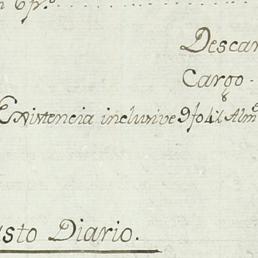 6 p.s
Descar
Cargo
Existencia inclusive 9/04 Alm.
sto Diario.